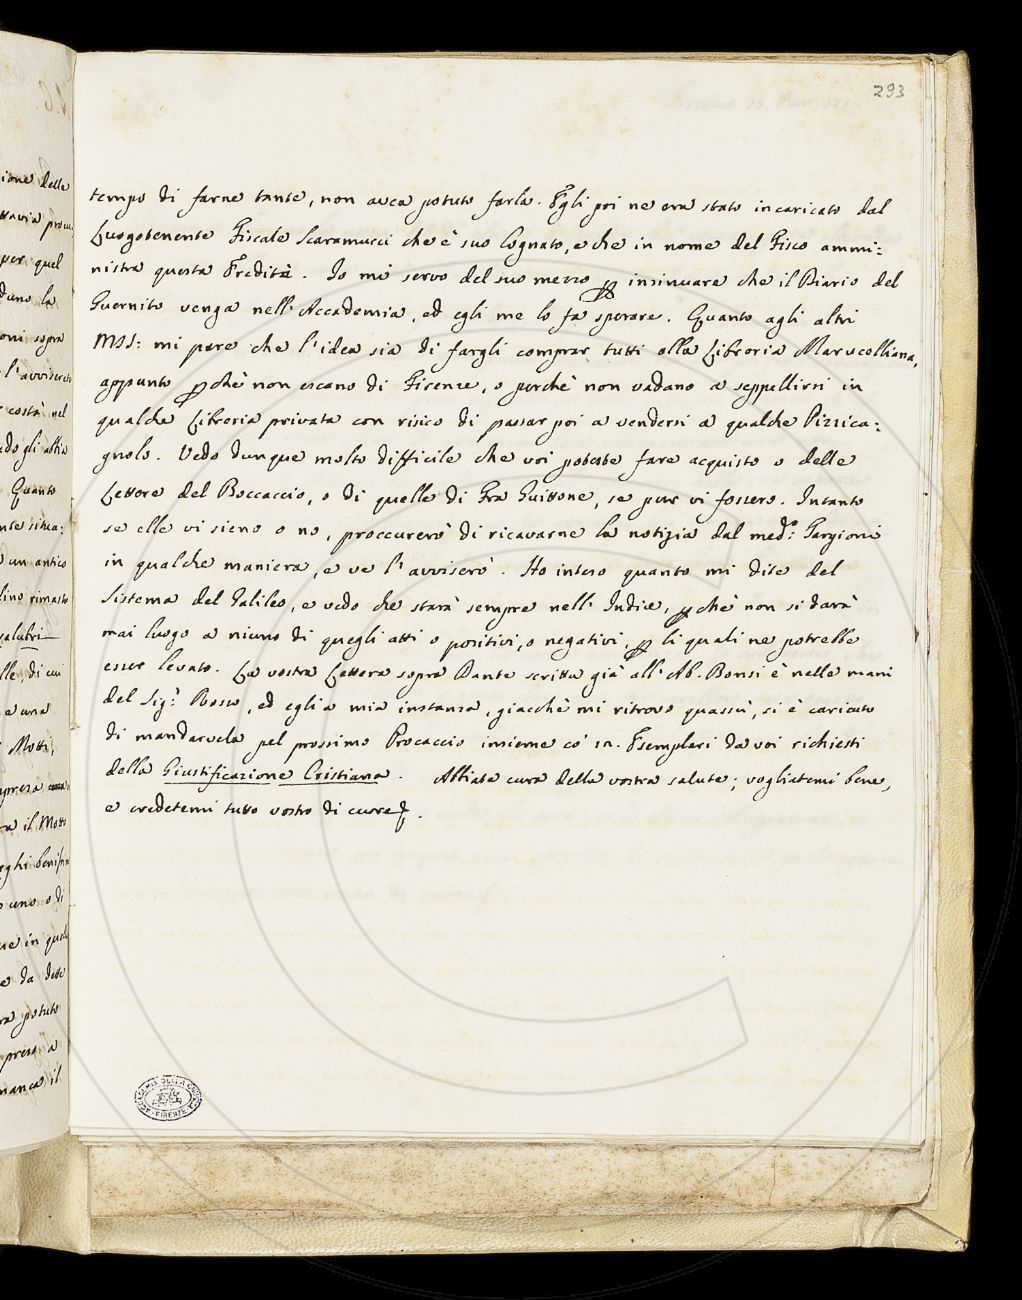 293
tempo di farne tante, non avea potuto farla. Egli poi ne era stato incaricato dal
Luogotenente Fiscale Scaramucci che è suo Cognato, e che in nome del Fisco ammi:
nistra questa Eredità. Io mi servo del suo mezzo p insinuare che il Diario del
Guernito venga nell' Accademia, ed egli me lo fa sperare. Quanto agli altri
MSS: mi pare che l'idea sia di fargli comprar tutti alla Libreria Marucelliana,
appunto pchè non escano di Firenze, o perchè non vadano a seppellirsi in
qualche Libreria privata con risico di passar poi a vendersi a qualche Pizzica:
gnolo. Vedo dunque molto difficile che voi poteste fare acquisto o delle
Lettere del Boccaccio, o di quelle di Fra Guittone, se pur vi fossero. Intanto
se elle vi sieno o no, proccurerò di ricavarne la notizia dal med.º: Targioni
in qualche maniera, e ve l'avviserò. Ho inteso quanto mi dite del
Sistema del Galileo, e vedo che starà sempre nell' Indice, pchè non si darà
mai luogo a niuno di quegli atti o positivi, o negativi, p li quali ne potrebbe
esser levato. La vostra Lettera sopra Dante scritta già all' Ab. Bonsi è nelle mani
del Sig.r: Bosco, ed egli a mia instanza, giacchè mi ritrovo quassù, si è caricato
di mandarvela pel prossimo Procaccio insieme co' 12. Esemplari da voi richiesti
della Giustificazione Cristiana. Abbiate cura della vostra salute; vogliatemi bene,
e credetemi tutto vostro di cuore.
ACCADEMIA DELLA CRUSCA
FIRENZE
ione delle
per quel
oni sopra
l'avviserete
costà nel
Quanto
un antico
lino rimasto
e una
Motti,
il Motti
uno o di
e in quel
e da dette
potuto